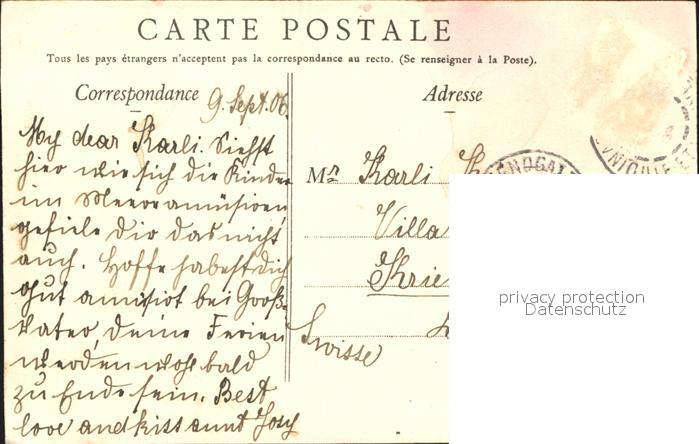 CARTE POSTALE
Tous les pays étrangers n'acceptent pas la correspondance au recto. (Se renseigner à la Poste).
Correspondance
9. Sept. 06.
Adresse
My dear Karli. Siehst
hier wie sich die Kinder
im Meer amüsieren,
gefiele Dir das nicht
auch. Hoffe habest Dich
gut amüsiert bei Groß-
vater, deine Ferien
werden wohl bald
zu Ende sein. Best
love and kiss aunt Josy
Mr Karli
Villa
Krie
Swisse
privacy protection
Datenschutz